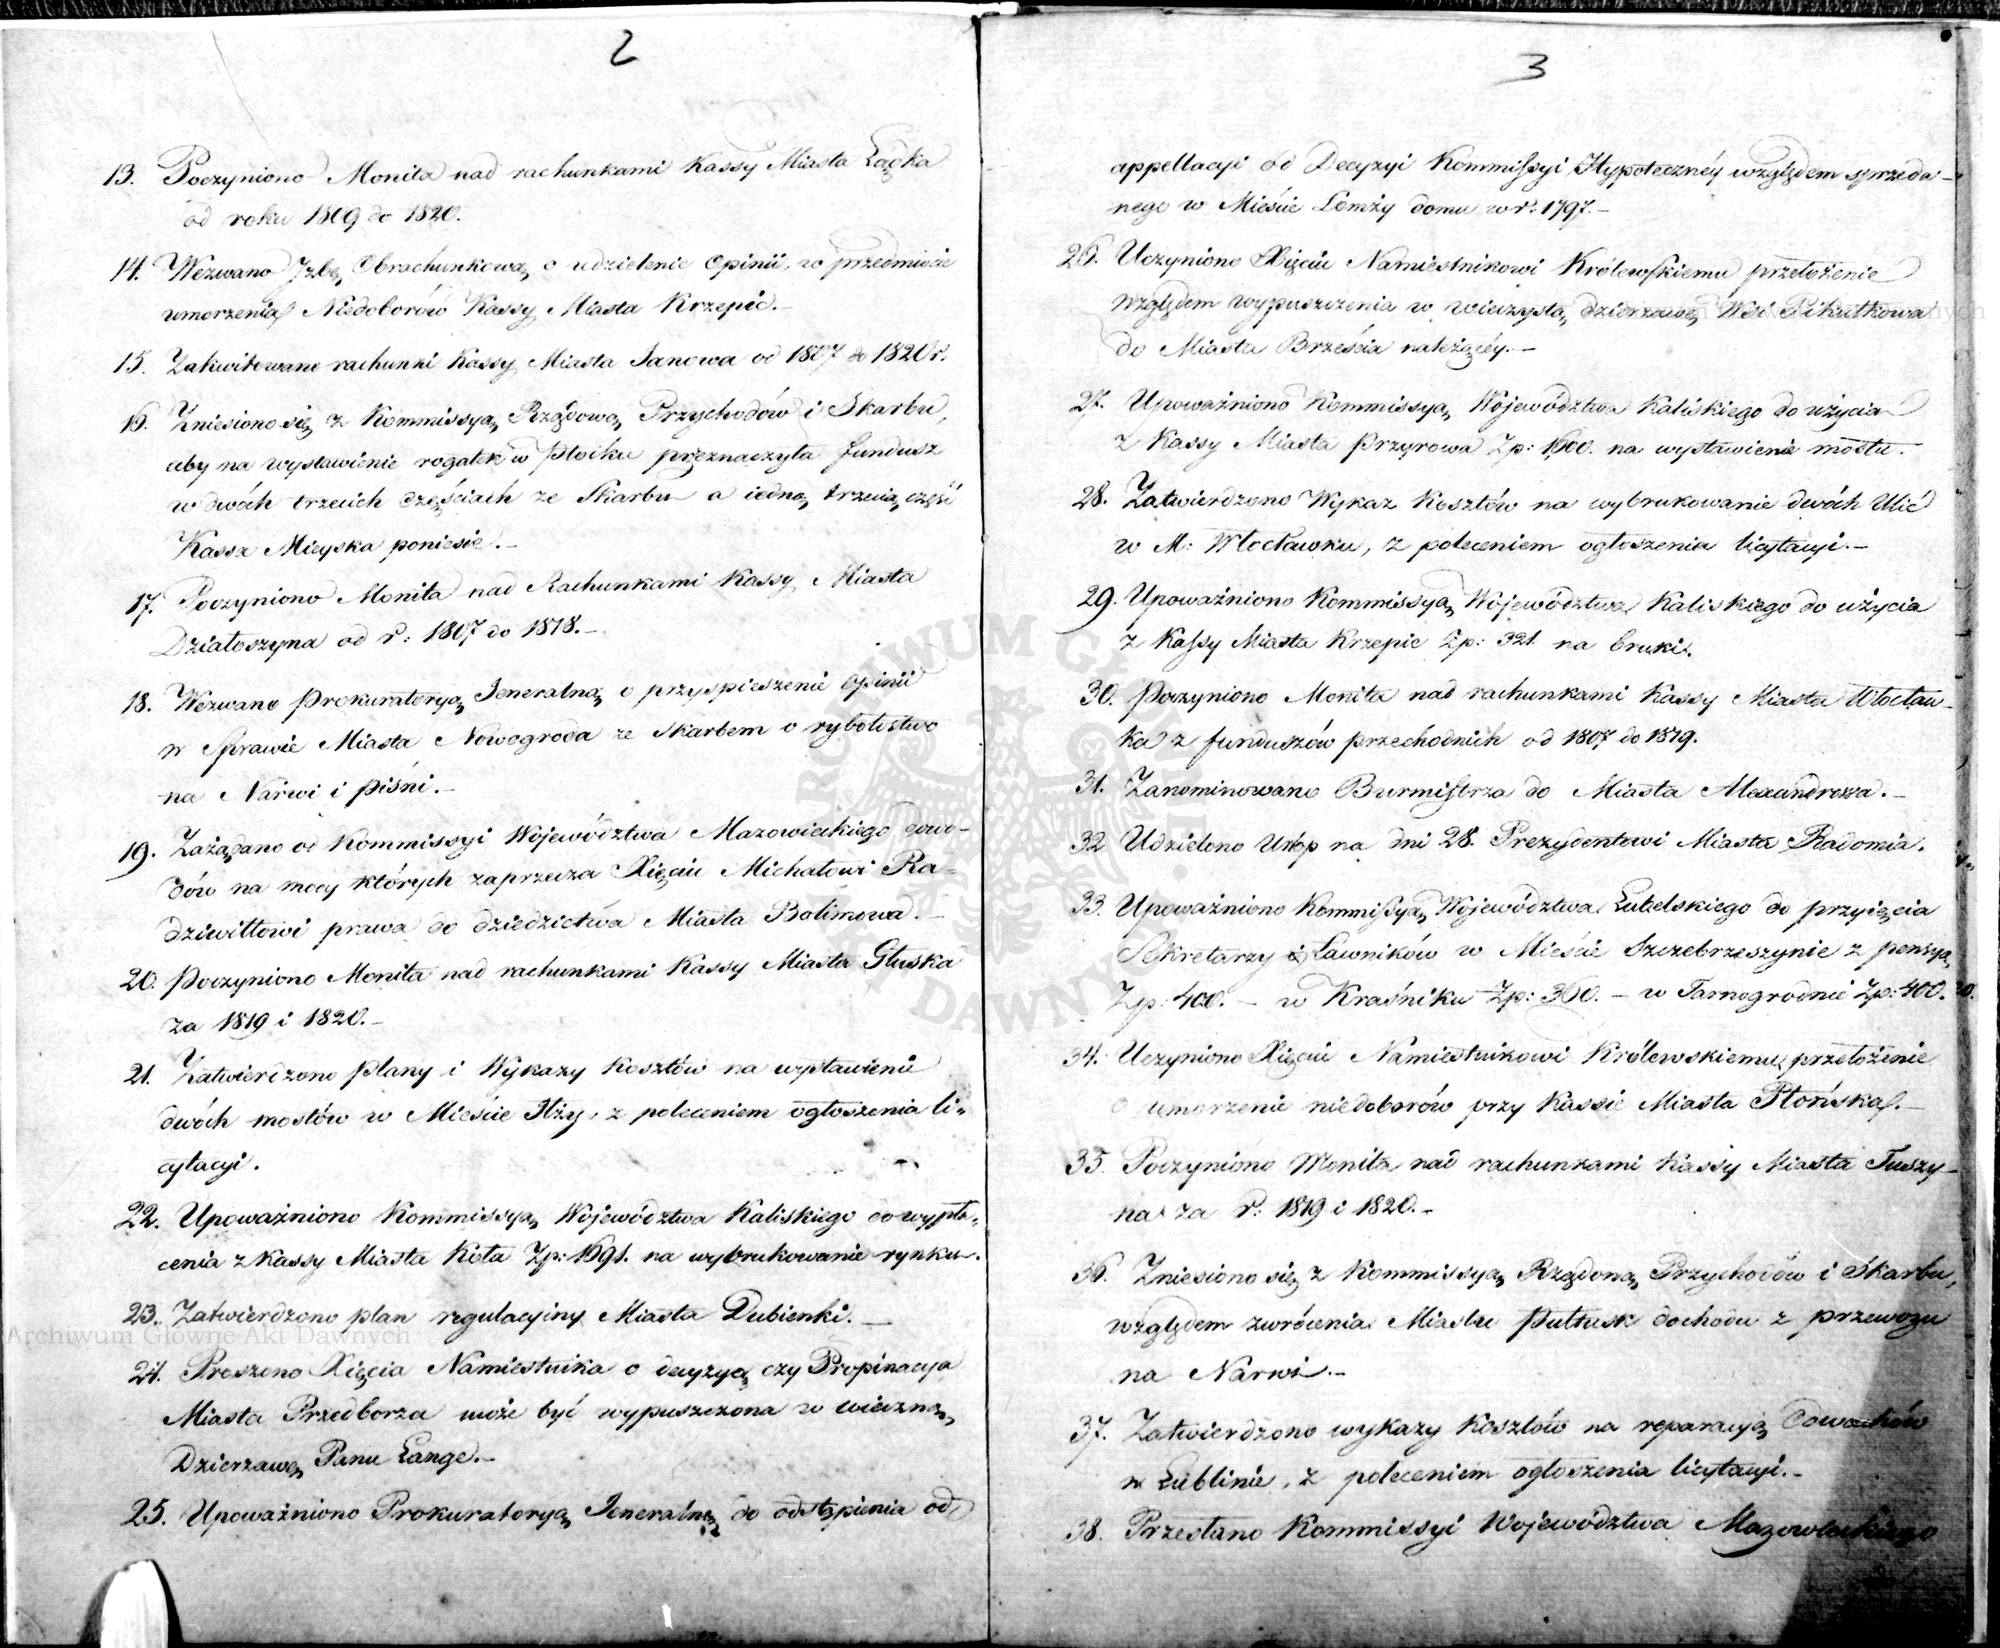 2
13. Poczyniono Monita nad rachunkami Kassy Miasta Łącka
od roku 1809 do 1820.
14. Wezwano Jzbę Obrachunkową o udzielenie Opinii, w przedmiocie
umorzenia Niedoborów Kassy Miasta Krzepic.–
15. Zakwitowano rachunki Kassy Miasta Janowa od 1807 do 1820 r.
16. Zniesiono się z Kommissyą Rządową Przychodów i Skarbu,
aby na wystawienie rogatek w Płocku przeznaczyła fundusz
w dwóch trzecich częściach ze Skarbu a iedną trzecią część
Kassa Mieyska poniesie.–
17. Poczyniono Monita nad Rachunkami Kassy Miasta
Działoszyna od r: 1807 do 1818.–
18. Wezwano Prokuratoryą Jeneralną o przyspieszenie Opinii
w Sprawie Miasta Nowogroda ze Skarbem o rybołostwo
na Narwi i Piśni.–
19. Zażądano od Kommissyi Województwa Mazowieckiego dowo-
dów na mocy których zaprzecza Xięciu Michałowi Ra-
dziwiłłowi prawa do dziedzictwa Miasta Bolimowa.–
20. Poczyniono Monita nad rachunkami Kassy Miasta Głuska
za 1819 i 1820.–
21. Zatwierdzono plany i Wykazy kosztów na wystawienie
dwóch mostów w Mieście Iłży, z poleceniem ogłoszenia li-
cytacyi.
22. Upoważniono Kommissyą Województwa Kaliskiego do wypła-
cenia z Kassy Miasta Koła Zp: 1691. na wybrukowanie rynku.
23. Zatwierdzono plan regulacyiny Miasta Dubienki.–
24. Proszono Xięcia Namiestnika o decyzyą czy Propinacya
Miasta Przedborza może być wypuszczona w wieczną
Dzierzawę Panu Lange.–
25. Upoważniono Prokuratoryą Jeneralną do odstąpienia od
3
appellacyi od Decyzyi Kommissyi Hypoteczney względem sprzeda-
nego w Mieście Łomży domu w r: 1797.–
26. Uczyniono Xięciu Namiestnikowi Królewskiemu przełożenie
względem wypuszczenia w wieczystą dzierzawę Wsi Pikutkowa
do Miasta Brześcia należącey.–
27. Upoważniono Kommissyą Województwa Kaliskiego do użycia
z Kassy Miasta Przyrowa Zp: 1600. na wystawienie mostu.
28. Zatwierdzono Wykaz Kosztów na wybrukowanie dwóch Ulic
w M: Włocławku, z poleceniem ogłoszenia licytacyi.–
29. Upoważniono Kommissyą Województwa Kaliskiego do użycia
z Kassy Miasta Krzepic Zp: 321. na bruki.
30. Poczyniono Monita nad rachunkami Kassy Miasta Włocław-
ka z funduszów przechodnich od 1807 do 1819.
31. Zanominowano Burmistrza do Miasta Alexandrowa.–
32 Udzielono Urlop na dni 28. Prezydentowi Miasta Radomia.
33. Upoważniono Kommissyą Województwa Lubelskiego do przyięcia
Sekretarzy i Ławników w Mieście Szczebrzeszynie z pensyą
Zp: 400.– w Kraśniku Zp: 360.– w Tarnogrodzie Zp: 400.
34. Uczyniono Xięciu Namiestnikowi Królewskiemu przełożenie
o umorzenie niedoborów przy Kassie Miasta Płońska.–
35. Poczyniono Monita nad rachunkami Kassy Miasta Tuszy-
na za r: 1819 i 1820.–
36. Zniesiono się z Kommissyą Rządową Przychodów i Skarbu,
względem zwrócenia Miastu Pułtusk dochodu z przewozu
na Narwi.–
37. Zatwierdzono wykazy Kosztów na reparacyą Odwachów
w Lublinie, z poleceniem ogłoszenia licytacyi.–
38. Przesłano Kommissyi Województwa Mazowieckiego
Archiwum Główne Akt Dawnych
ARCHIWUM GŁÓWNE AKT DAWNYCH